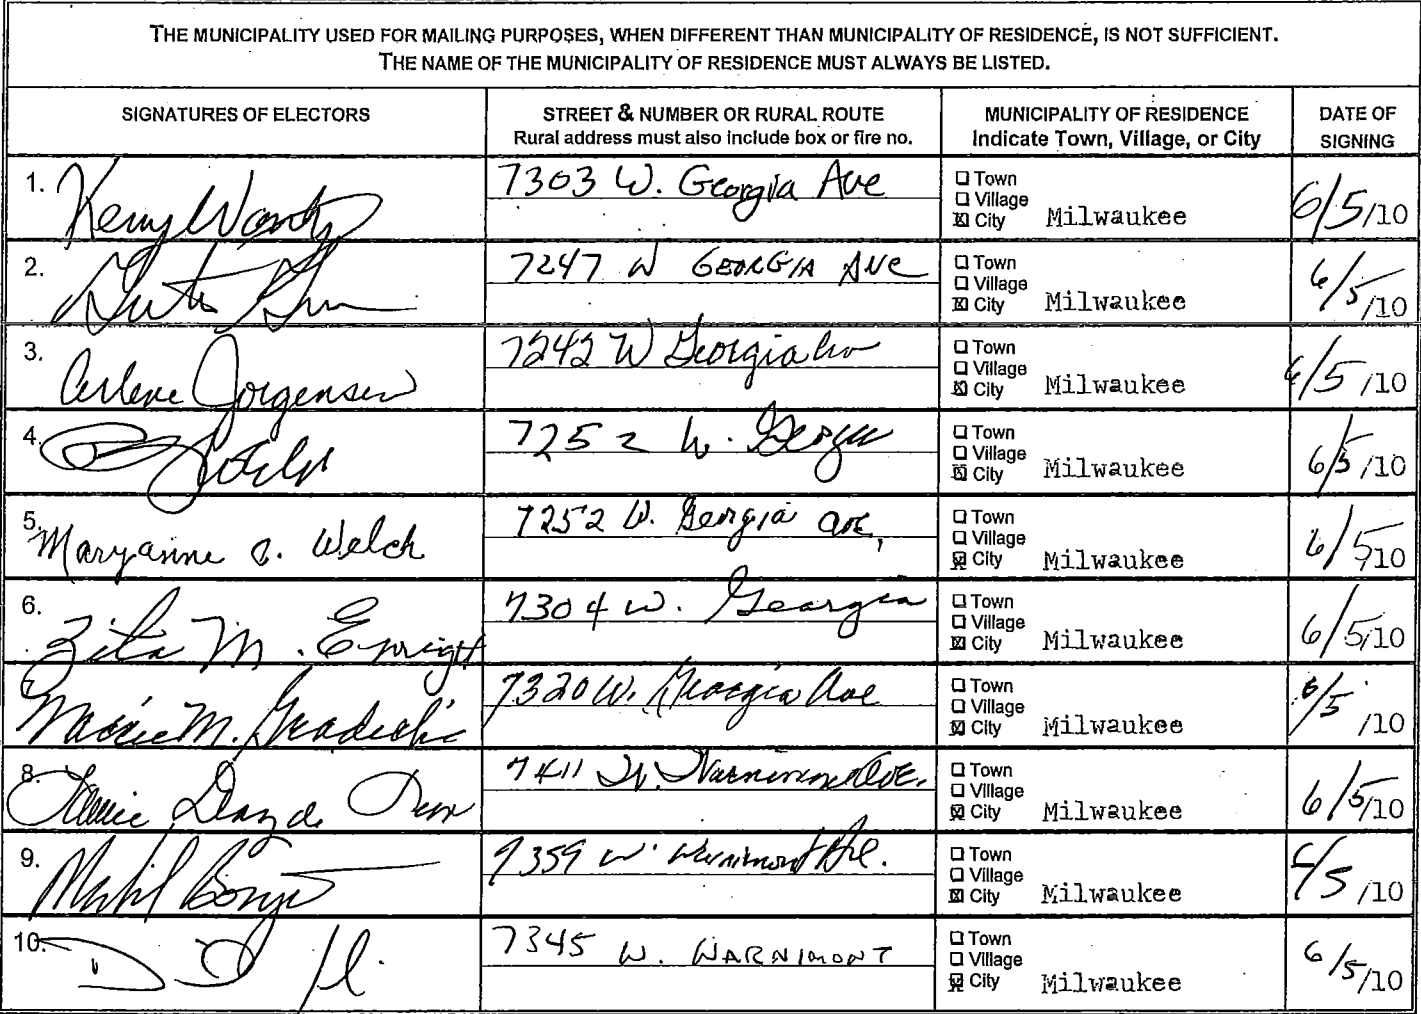 THE MUNICIPALITY USED FOR MAILING PURPOSES, WHEN DIFFERENT THAN MUNICIPALITY OF RESIDENCE, IS NOT SUFFICIENT.
THE NAME OF THE MUNICIPALITY OF RESIDENCE MUST ALWAYS BE LISTED.
SIGNATURES OF ELECTORS
STREET & NUMBER OR RURAL ROUTE
Rural address must also include box or fire no.
MUNICIPALITY OF RESIDENCE
Indicate Town, Village, or City
DATE OF
SIGNING
1. Kerry
7303 W. Georgia Ave
Town
Village
City Milwaukee
6/5/10
2.
7247 W GEORGIA AVE
Town
Village
City Milwaukee
6/5/10
3.
Arlene Jorgensen
7242 W Georgia Ave
Town
Village
City Milwaukee
6/5/10
4.
7252 W.
Town
Village
City Milwaukee
6/5/10
5.
Maryanne C. Welch
7252 W. Georgia ave,
Town
Village
City Milwaukee
6/5/10
6.
Zita M. Enright
7304 W. Georgia
Town
Village
City Milwaukee
6/5/10
7.
M.
7320 W. Georgia Ave
Town
Village
City Milwaukee
6/5/10
8.
7411 W. Warnimont Ave.
Town
Village
City Milwaukee
6/5/10
9.
7359 W. Warnimont Ave.
Town
Village
City Milwaukee
6/5/10
10.
7345 W. WARNIMONT
Town
Village
City Milwaukee
6/5/10